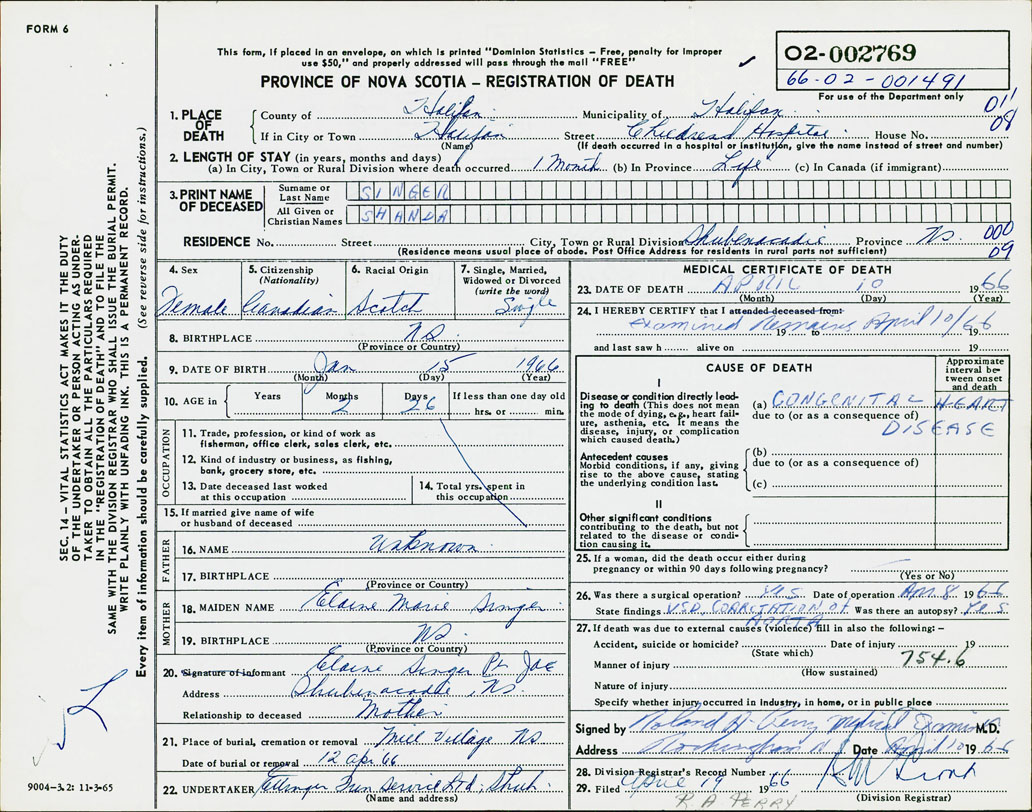 FORM 6
This form, if placed in an envelope, on which is printed "Dominion Statistics – Free, penalty for improper
use $50," and properly addressed will pass through the mail "FREE"
PROVINCE OF NOVA SCOTIA – REGISTRATION OF DEATH
02-002769
66-02-001491
For use of the Department only
011
08
1. PLACE OF DEATH
County of Halifax Municipality of Halifax
If in City or Town Halifax Street Childrens Hospital House No.
(Name) (If death occurred in a hospital or institution, give the name instead of street and number)
2. LENGTH OF STAY (in years, months and days)
(a) In City, Town or Rural Division where death occurred 1 Month (b) In Province Life (c) In Canada (if immigrant)
3. PRINT NAME OF DECEASED
Surname or Last Name SINGER
All Given or Christian Names SHANDA
RESIDENCE No. Street City, Town or Rural Division Shubenacadie Province NS. 000
09
(Residence means usual place of abode. Post Office Address for residents in rural parts not sufficient)
4. Sex Female
5. Citizenship (Nationality) Canadian
6. Racial Origin Scotch
7. Single, Married, Widowed or Divorced (write the word) Single
8. BIRTHPLACE NS
(Province or Country)
9. DATE OF BIRTH Jan 15 1966
(Month) (Day) (Year)
10. AGE in Years Months 2 Days 26 If less than one day old
hrs. or min.
OCCUPATION
11. Trade, profession, or kind of work as
fisherman, office clerk, sales clerk, etc.
12. Kind of industry or business, as fishing,
bank, grocery store, etc.
13. Date deceased last worked
at this occupation
14. Total yrs. spent in
this occupation
15. If married give name of wife
or husband of deceased
FATHER
16. NAME Unknown
17. BIRTHPLACE
(Province or Country)
MOTHER
18. MAIDEN NAME Elaine Marie Singer
19. BIRTHPLACE NS
(Province or Country)
20. Signature of informant Elaine Singer Per
Address Shubenacadie, NS.
Relationship to deceased Mother
21. Place of burial, cremation or removal Mill Village NS
Date of burial or removal 12 Apr 66
22. UNDERTAKER Ettinger Fun Service Ltd. Shub.
(Name and address)
MEDICAL CERTIFICATE OF DEATH
23. DATE OF DEATH APRIL 10 1966
(Month) (Day) (Year)
24. I HEREBY CERTIFY that I attended deceased from:
Examined Remains April 10/66
19 to 19
and last saw h alive on 19
CAUSE OF DEATH
Approximate interval between onset and death
I
Disease or condition directly leading to death (This does not
mean the mode of dying, e.g., heart failure, asthenia, etc. It means the
disease, injury, or complication
which caused death.)
(a) CONGENITAL HEART
due to (or as a consequence of)
DISEASE
Antecedent causes
Morbid conditions, if any, giving
rise to the above cause, stating
the underlying condition last.
(b)
due to (or as a consequence of)
(c)
II
Other significant conditions
contributing to the death, but not
related to the disease or condition
causing it.
25. If a woman, did the death occur either during
pregnancy or within 90 days following pregnancy?
(Yes or No)
26. Was there a surgical operation? Yes Date of operation Apr. 8 1966
State findings V.S.D. COARCTATION OF AORTA Was there an autopsy? Yes
27. If death was due to external causes (violence) fill in also the following: –
Accident, suicide or homicide? Date of injury 19
(State which)
754.6
Manner of injury
(How sustained)
Nature of injury
Specify whether injury occurred in Industry, in home, or in public place
Signed by Roland H. Perry Medical Examiner M.D.
Address Rockingham N.S. Date April 10 1966
28. Division Registrar's Record Number
29. Filed April 19 1966
(Division Registrar)
R A PERRY
SEC. 14 – VITAL STATISTICS ACT MAKES IT THE DUTY
OF THE UNDERTAKER OR PERSON ACTING AS UNDER-
TAKER TO OBTAIN ALL THE PARTICULARS REQUIRED
IN THE "REGISTRATION OF DEATH" AND TO FILE THE
SAME WITH THE DIVISION REGISTRAR WHO SHALL ISSUE THE BURIAL PERMIT.
WRITE PLAINLY WITH UNFADING INK. THIS IS A PERMANENT RECORD.
Every item of information should be carefully supplied. (See reverse side for instructions.)
9004-3.2: 11-3-65